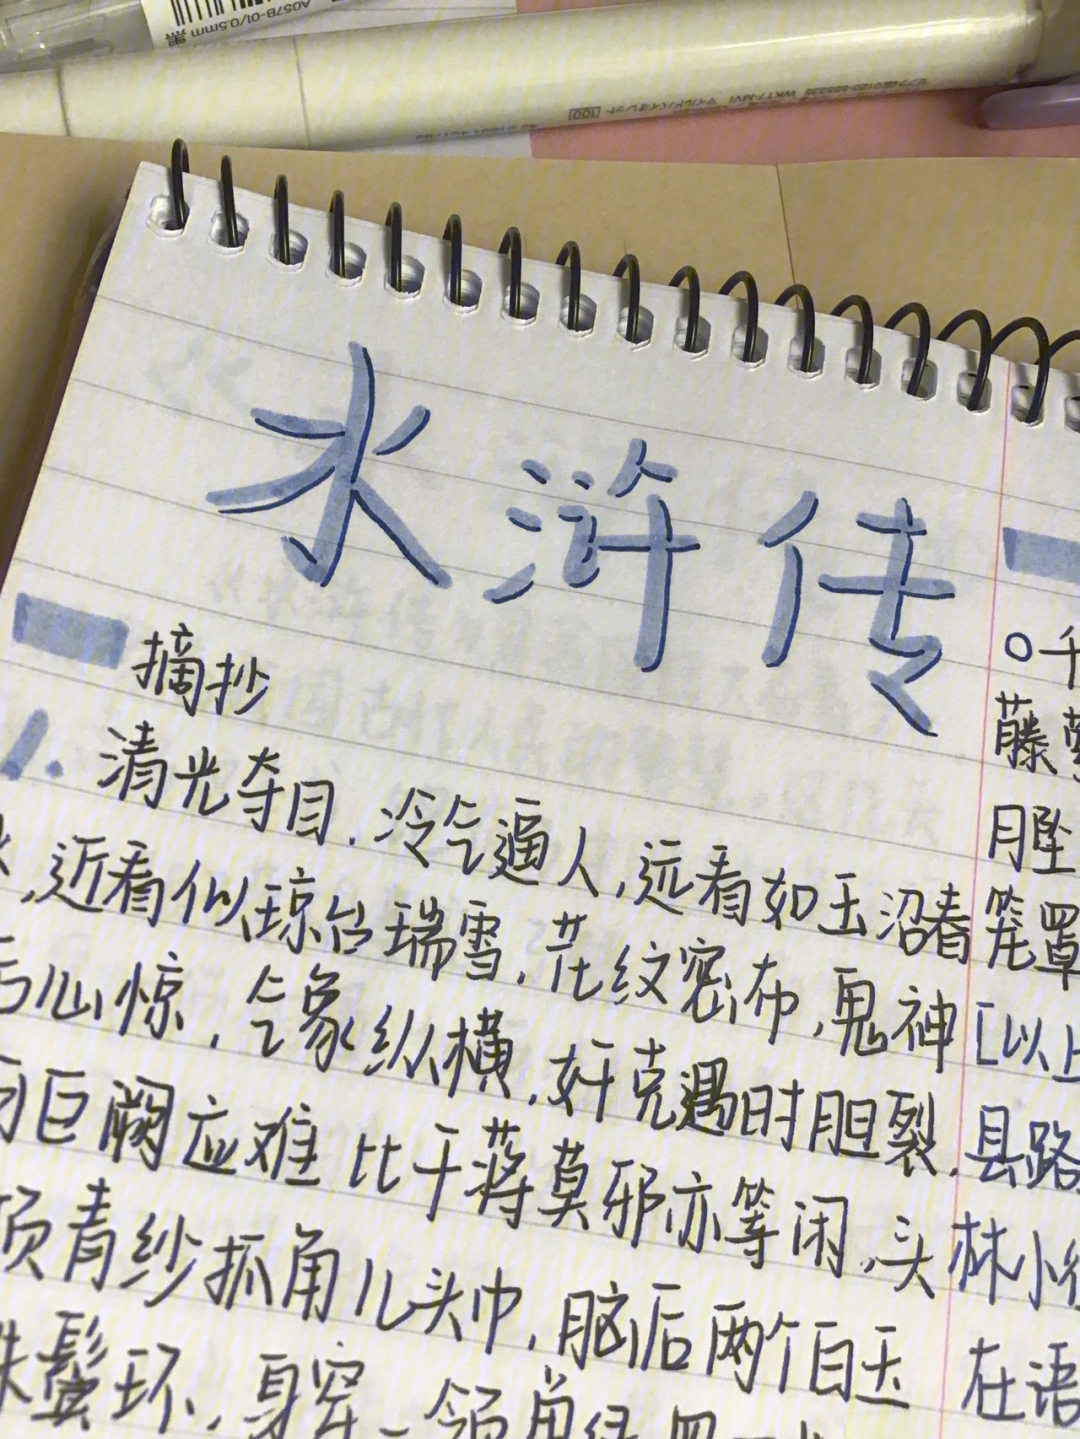 A057B-01/0.5mm 黑
水浒传
摘抄
1. 清光夺目.冷气逼人,远看如玉沼春
,近看似琼台瑞雪.花纹密布,鬼神
心惊,气象纵横.奸克遇时胆裂.
巨阙应难比干蒋莫邪亦等闲.头
顶青纱抓角儿头巾,脑后两个白玉
鬓环.身穿一领单绿罗
○千
藤萦
月坠
笼罩
[以上
县路
林小
在语